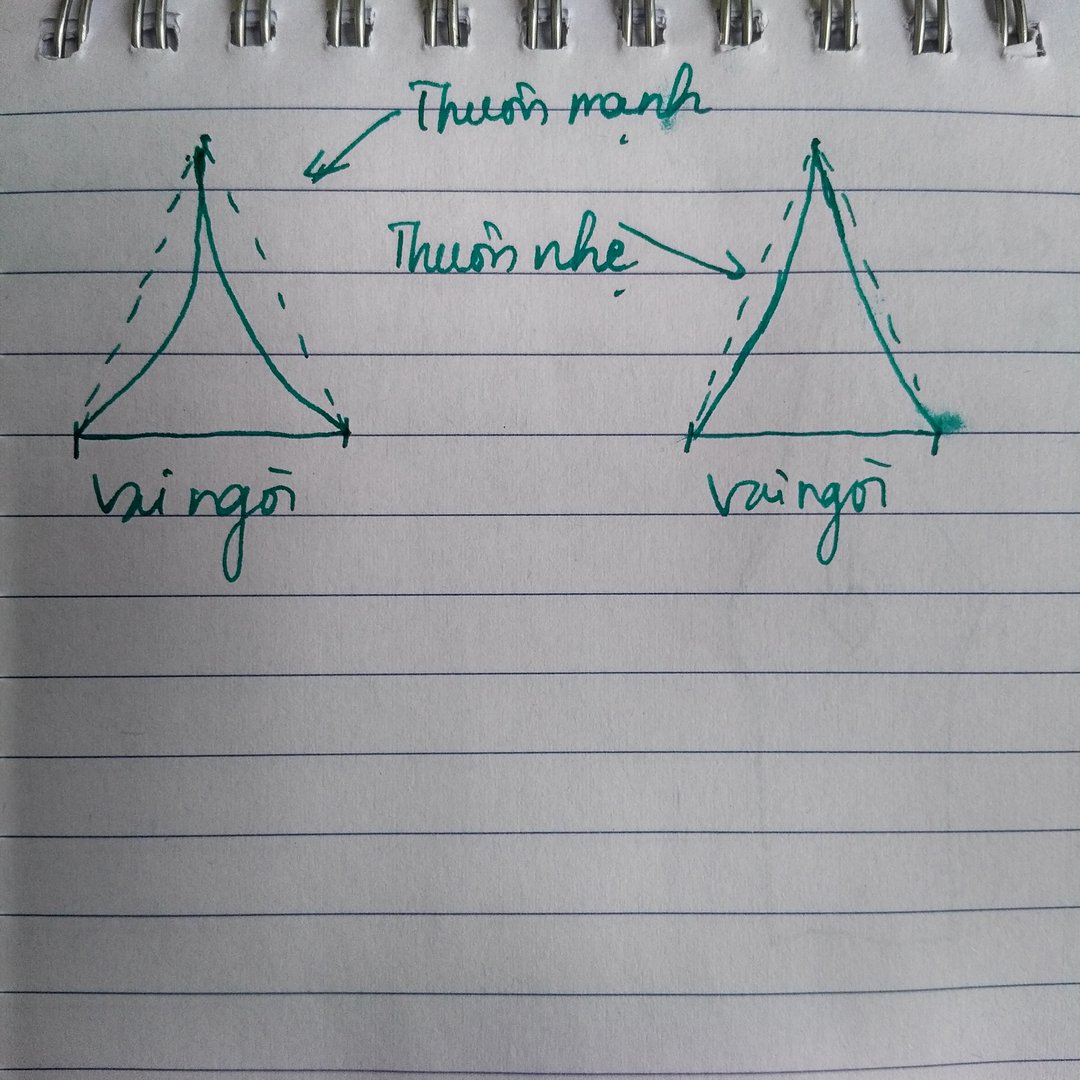 Thuôn mạnh
Thuôn nhẹ
Vai ngòi
Vai ngòi